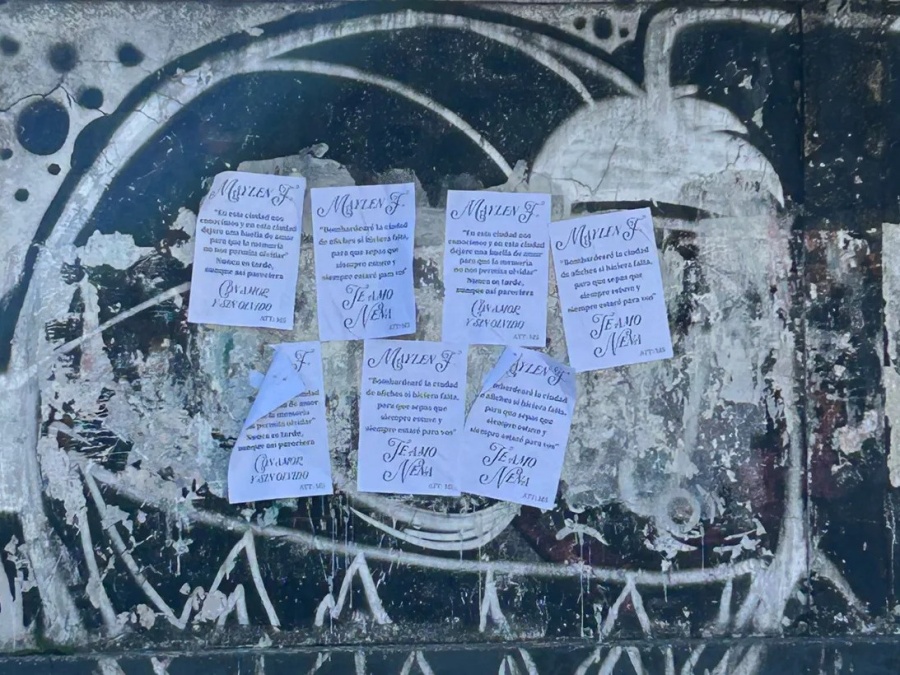 MAYLEN F.
"En esta ciudad nos
conocimos y en esta ciudad
dejare una huella de amor
para que la memoria
no nos permita olvidar"
Nunca en tarde,
aunque asi pareciera
CON AMOR
Y SIN OLVIDO
ATT: MS
MAYLEN F.
"Bombardearé la ciudad
de afiches si hiciera falta,
para que sepas que
siempre estuve y
siempre estaré para vos"
TE AMO
NENA
ATT: MS
MAYLEN F.
"En esta ciudad nos
conocimos y en esta ciudad
dejare una huella de amor
para que la memoria
no nos permita olvidar"
Nunca en tarde,
aunque asi pareciera
CON AMOR
Y SIN OLVIDO
ATT: MS
MAYLEN F.
"Bombardearé la ciudad
de afiches si hiciera falta,
para que sepas que
siempre estuve y
siempre estaré para vos"
TE AMO
NENA
ATT: MS
F.
ciudad
de amor
la memoria
permita olvidar"
Nunca en tarde,
aunque asi pareciera
CON AMOR
Y SIN OLVIDO
ATT: MS
MAYLEN F.
"Bombardearé la ciudad
de afiches si hiciera falta,
para que sepas que
siempre estuve y
siempre estaré para vos"
TE AMO
NENA
ATT: MS
AYLEN F.
mbardearé la ciudad
de afiches si hiciera falta,
para que sepas que
siempre estuve y
siempre estaré para vos"
TE AMO
NENA
ATT: MS